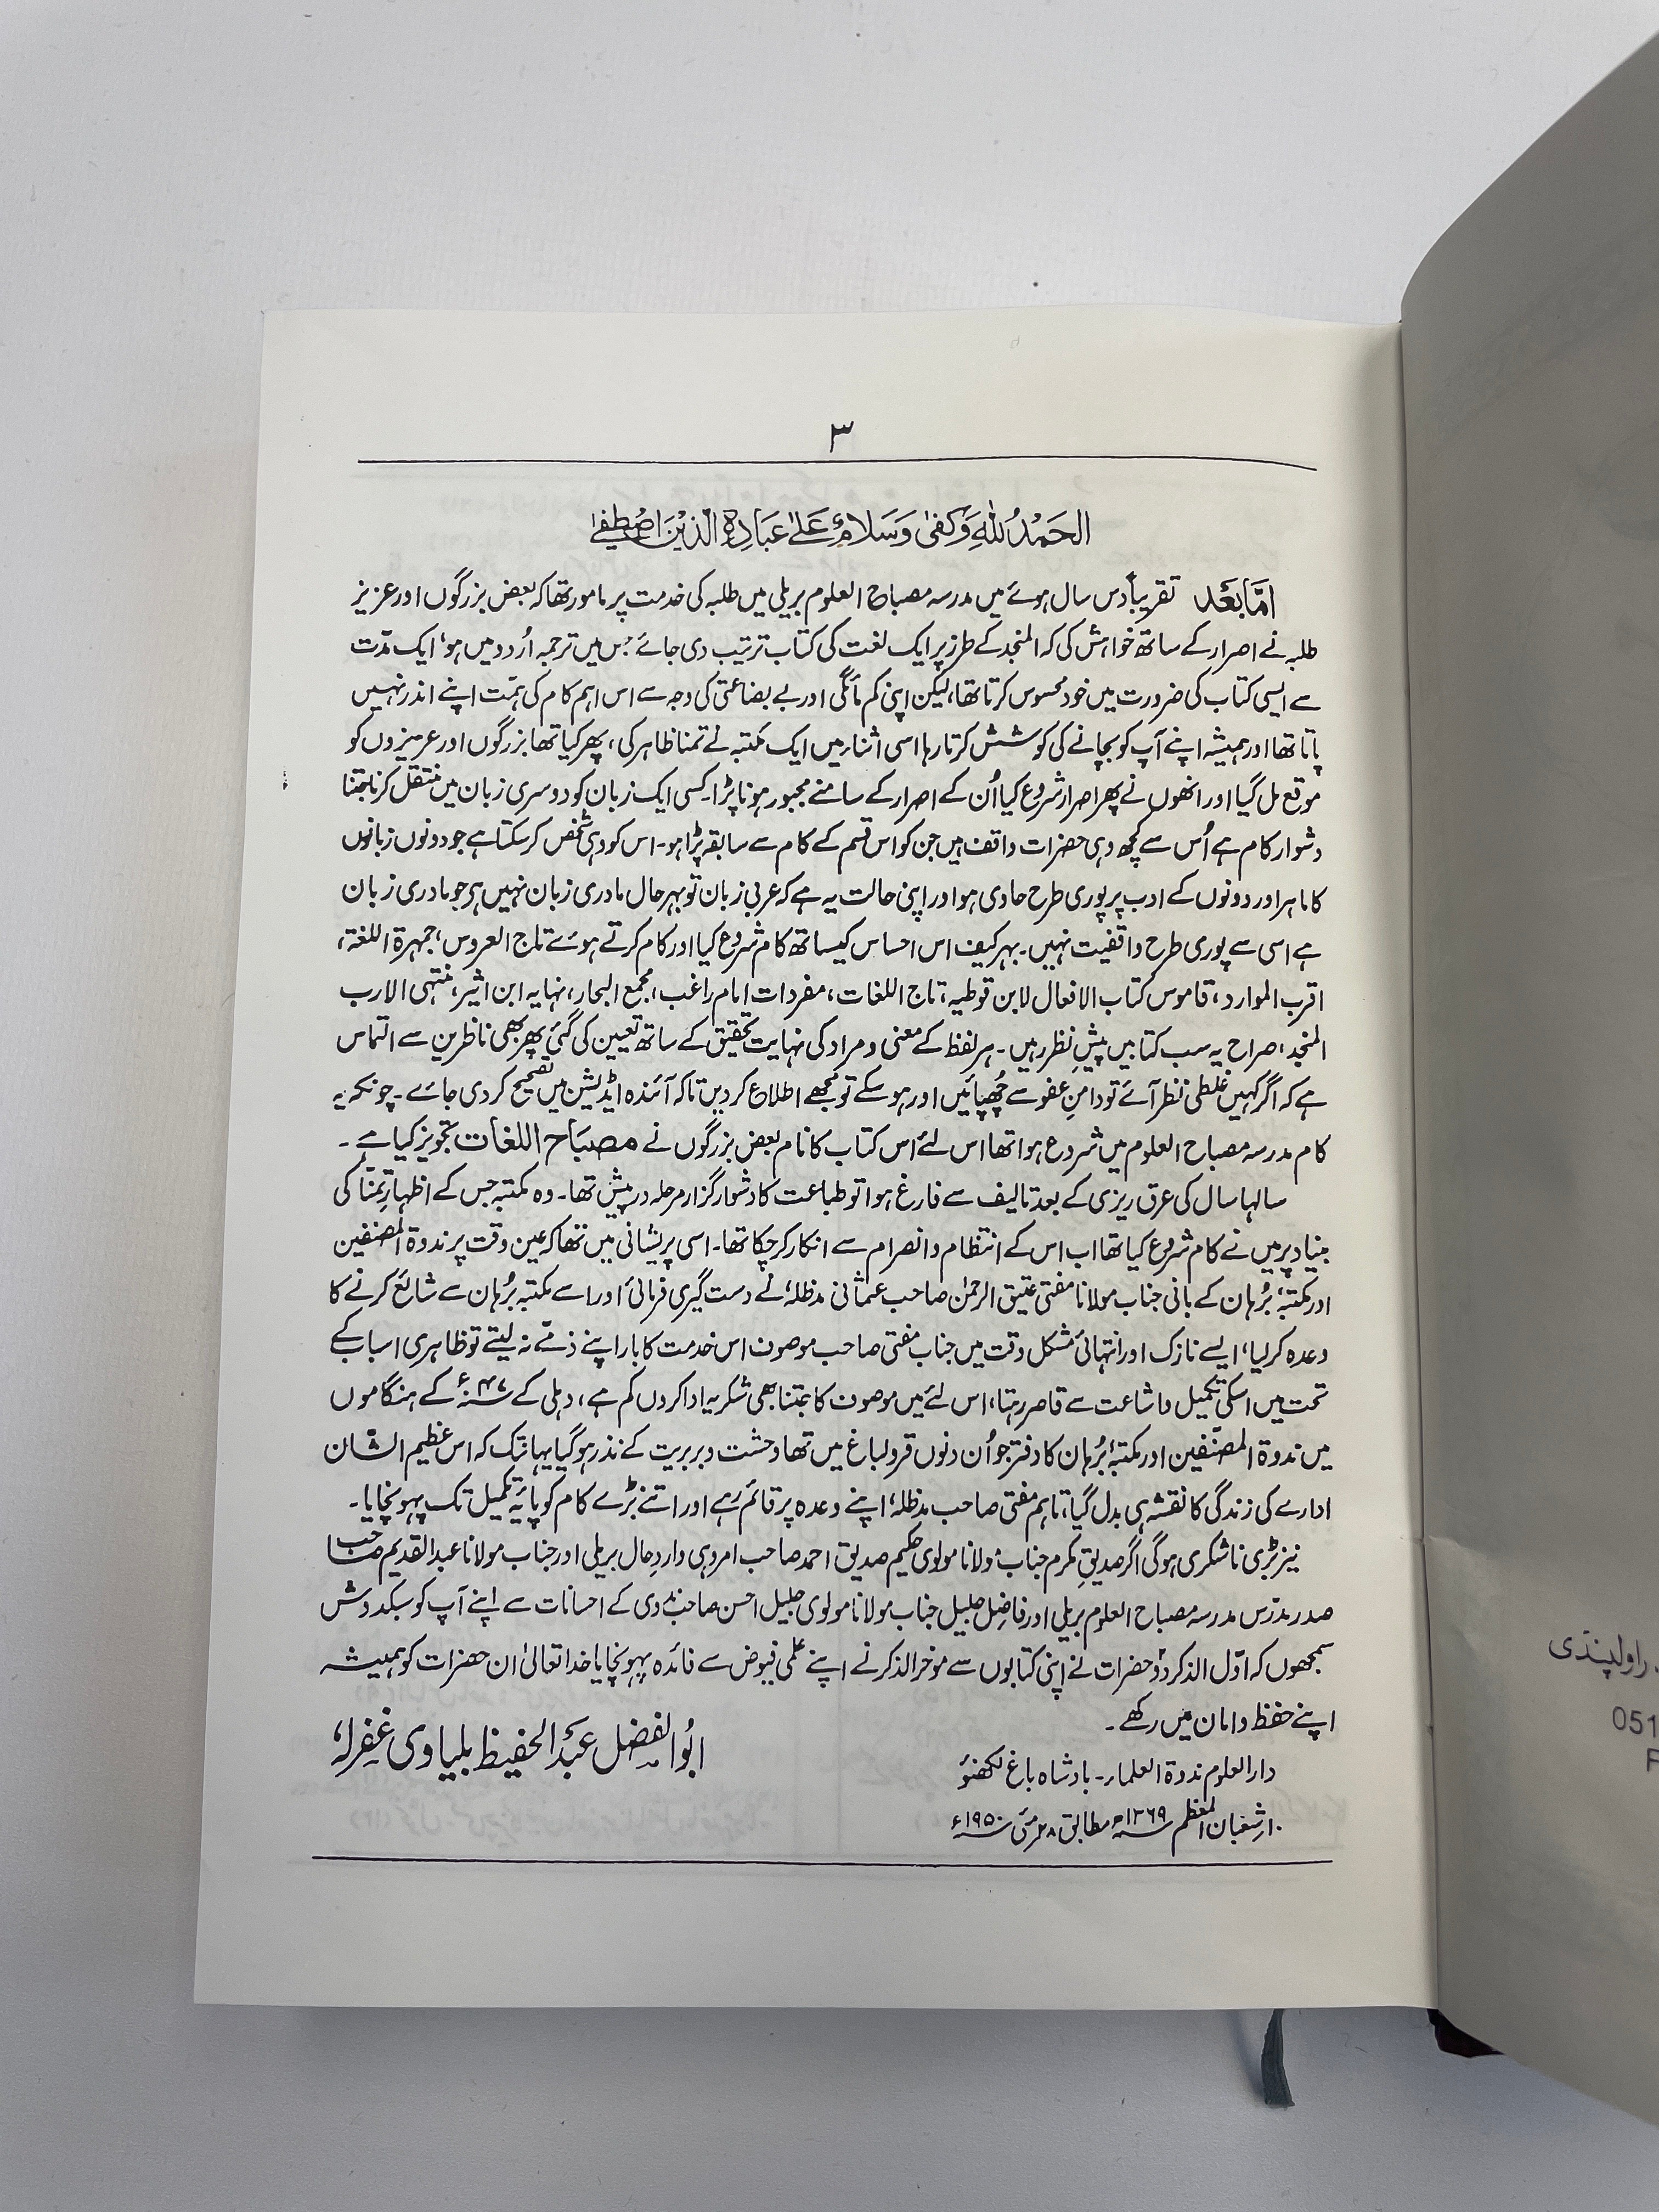 ۳
الحَمْدُ لِلّٰهِ وَكَفیٰ وَسَلامٌ عَلیٰ عِبَادِهِ الَّذِيْنَ اصْطَفیٰ
امّا بَعْد تقریباً دس سال ہوئے میں مدرسہ مصباح العلوم بریلی میں طلبہ کی خدمت پر مامور تھا کہ بعض بزرگوں اور عزیز
طلبہ نے اصرار کے ساتھ خواہش کی کہ المنجد کے طرز پر ایک لغت کی کتاب ترتیب دی جائے جس میں ترجمہ اُردو میں ہو، ایک مدّت
سے ایسی کتاب کی ضرورت میں خود محسوس کرتا تھا، لیکن اپنی کم مائگی اور بے بضاعتی کی وجہ سے اس اہم کام کی ہمّت اپنے اندر نہیں
پاتا تھا اور ہمیشہ اپنے آپ کو بچانے کی کوشش کرتا رہا اسی اثنار میں ایک مکتبہ نے تمنا ظاہر کی، پھر کیا تھا بزرگوں اور عزیزوں کو
موقع مل گیا اور انھوں نے پھر اصرار شروع کیا اُن کے اصرار کے سامنے مجبور ہونا پڑا۔ کسی ایک زبان کو دوسری زبان میں منتقل کرنا جتنا
دشوار کام ہے اُس سے کچھ وہی حضرات واقف ہیں جن کو اس قسم کے کام سے سابقہ پڑا ہو۔ اس کو وہی شخص کر سکتا ہے جو دونوں زبانوں
کا ماہر اور دونوں کے ادب پر پوری طرح حاوی ہو اور اپنی حالت یہ ہے کہ عربی زبان تو بہر حال مادری زبان نہیں ہی جو مادری زبان
ہے اسی سے پوری طرح واقفیت نہیں۔ بہر کیف اس احساس کیساتھ کام شروع کیا اور کام کرتے ہوئے تاج العروس، جمہرۃ اللغۃ،
اقرب الموارد، قاموس کتاب الافعال لابن قوطیہ، تاج اللغات، مفردات امام راغب، مجمع البحار، نہایہ ابن اثیر، منتہی الارب
المنجد، صراح یہ سب کتابیں پیشِ نظر رہیں۔ ہر لفظ کے معنی و مراد کی نہایت تحقیق کے ساتھ تعیین کی گئی پھر بھی ناظرین سے التماس
ہے کہ اگر کہیں غلطی نظر آئے تو دامنِ عفو سے چُھپائیں اور ہو سکے تو مجھے اطلاع کر دیں تاکہ آئندہ ایڈیشن میں تصحیح کر دی جائے۔ چونکہ یہ
کام مدرسہ مصباح العلوم میں شروع ہوا تھا اس لئے اس کتاب کا نام بعض بزرگوں نے مصبَاح اللغات تجویز کیا ہے۔
سالہا سال کی عرق ریزی کے بعد تالیف سے فارغ ہوا تو طباعت کا دشوار گزار مرحلہ درپیش تھا۔ وہ مکتبہ جس کے اظہارِ تمنّا کی
بنیاد پر میں نے کام شروع کیا تھا اب اس کے انتظام و انصرام سے انکار کر چکا تھا۔ اسی پریشانی میں تھا کہ عین وقت پر ندوۃ المصنفین
اور مکتبہ بُرہان کے بانی جناب مولانا مفتی عتیق الرحمٰن صاحب عثمانی مدظلہٗ نے دست گیری فرمائی اور اسے مکتبہ بُرہان سے شائع کرنے کا
وعدہ کر لیا، ایسے نازک اور انتہائی مشکل وقت میں جناب مفتی صاحب موصوف اس خدمت کا بار اپنے ذمّے نہ لیتے تو ظاہری اسباب کے
تحت میں اسکی تکمیل و اشاعت سے قاصر رہتا، اس لئے میں موصوف کا جتنا بھی شکریہ ادا کروں کم ہے، دہلی کے ۴۷ء کے ہنگاموں
میں ندوۃ المصنّفین اور مکتبۂ بُرہان کا دفتر جو اُن دنوں قرولباغ میں تھا وحشت و بربریت کے نذر ہو گیا یہانتک کہ اس عظیم الشّان
ادارے کی زندگی کا نقشہ ہی بدل گیا، تاہم مفتی صاحب مدظلہٗ اپنے وعدہ پر قائم رہے اور اتنے بڑے کام کو پایۂ تکمیل تک پہونچایا۔
نیز بڑی ناشکری ہوگی اگر صدیقِ مکرم جناب مولانا مولوی حکیم صدیق احمد صاحب امروہی واردِ حال بریلی اور جناب مولانا عبد القدیم صاحب
صدر مدرّس مدرسہ مصباح العلوم بریلی اور فاضِل جلیل جناب مولانا مولوی جلیل احسن صاحب ندوی کے احسانات سے اپنے آپ کو سبکدوش
سمجھوں کہ اوّل الذکر دوٗ حضرات نے اپنی کتابوں سے موخر الذکر نے اپنے علمی فیوض سے فائدہ پہونچایا خدا تعالیٰ ان حضرات کو ہمیشہ
اپنے حفظ و امان میں رکھے۔
ابُو الفضل عبدُ الحفیظ بلیاوی غفرلہٗ
دار العلوم ندوۃ العلمار۔ بادشاہ باغ لکھنؤ
۱۰ر شعبان المعظم ۱۳۶۹ھ مطابق ۲۸ر مئی ۱۹۵۰ء
راولپنڈی
051